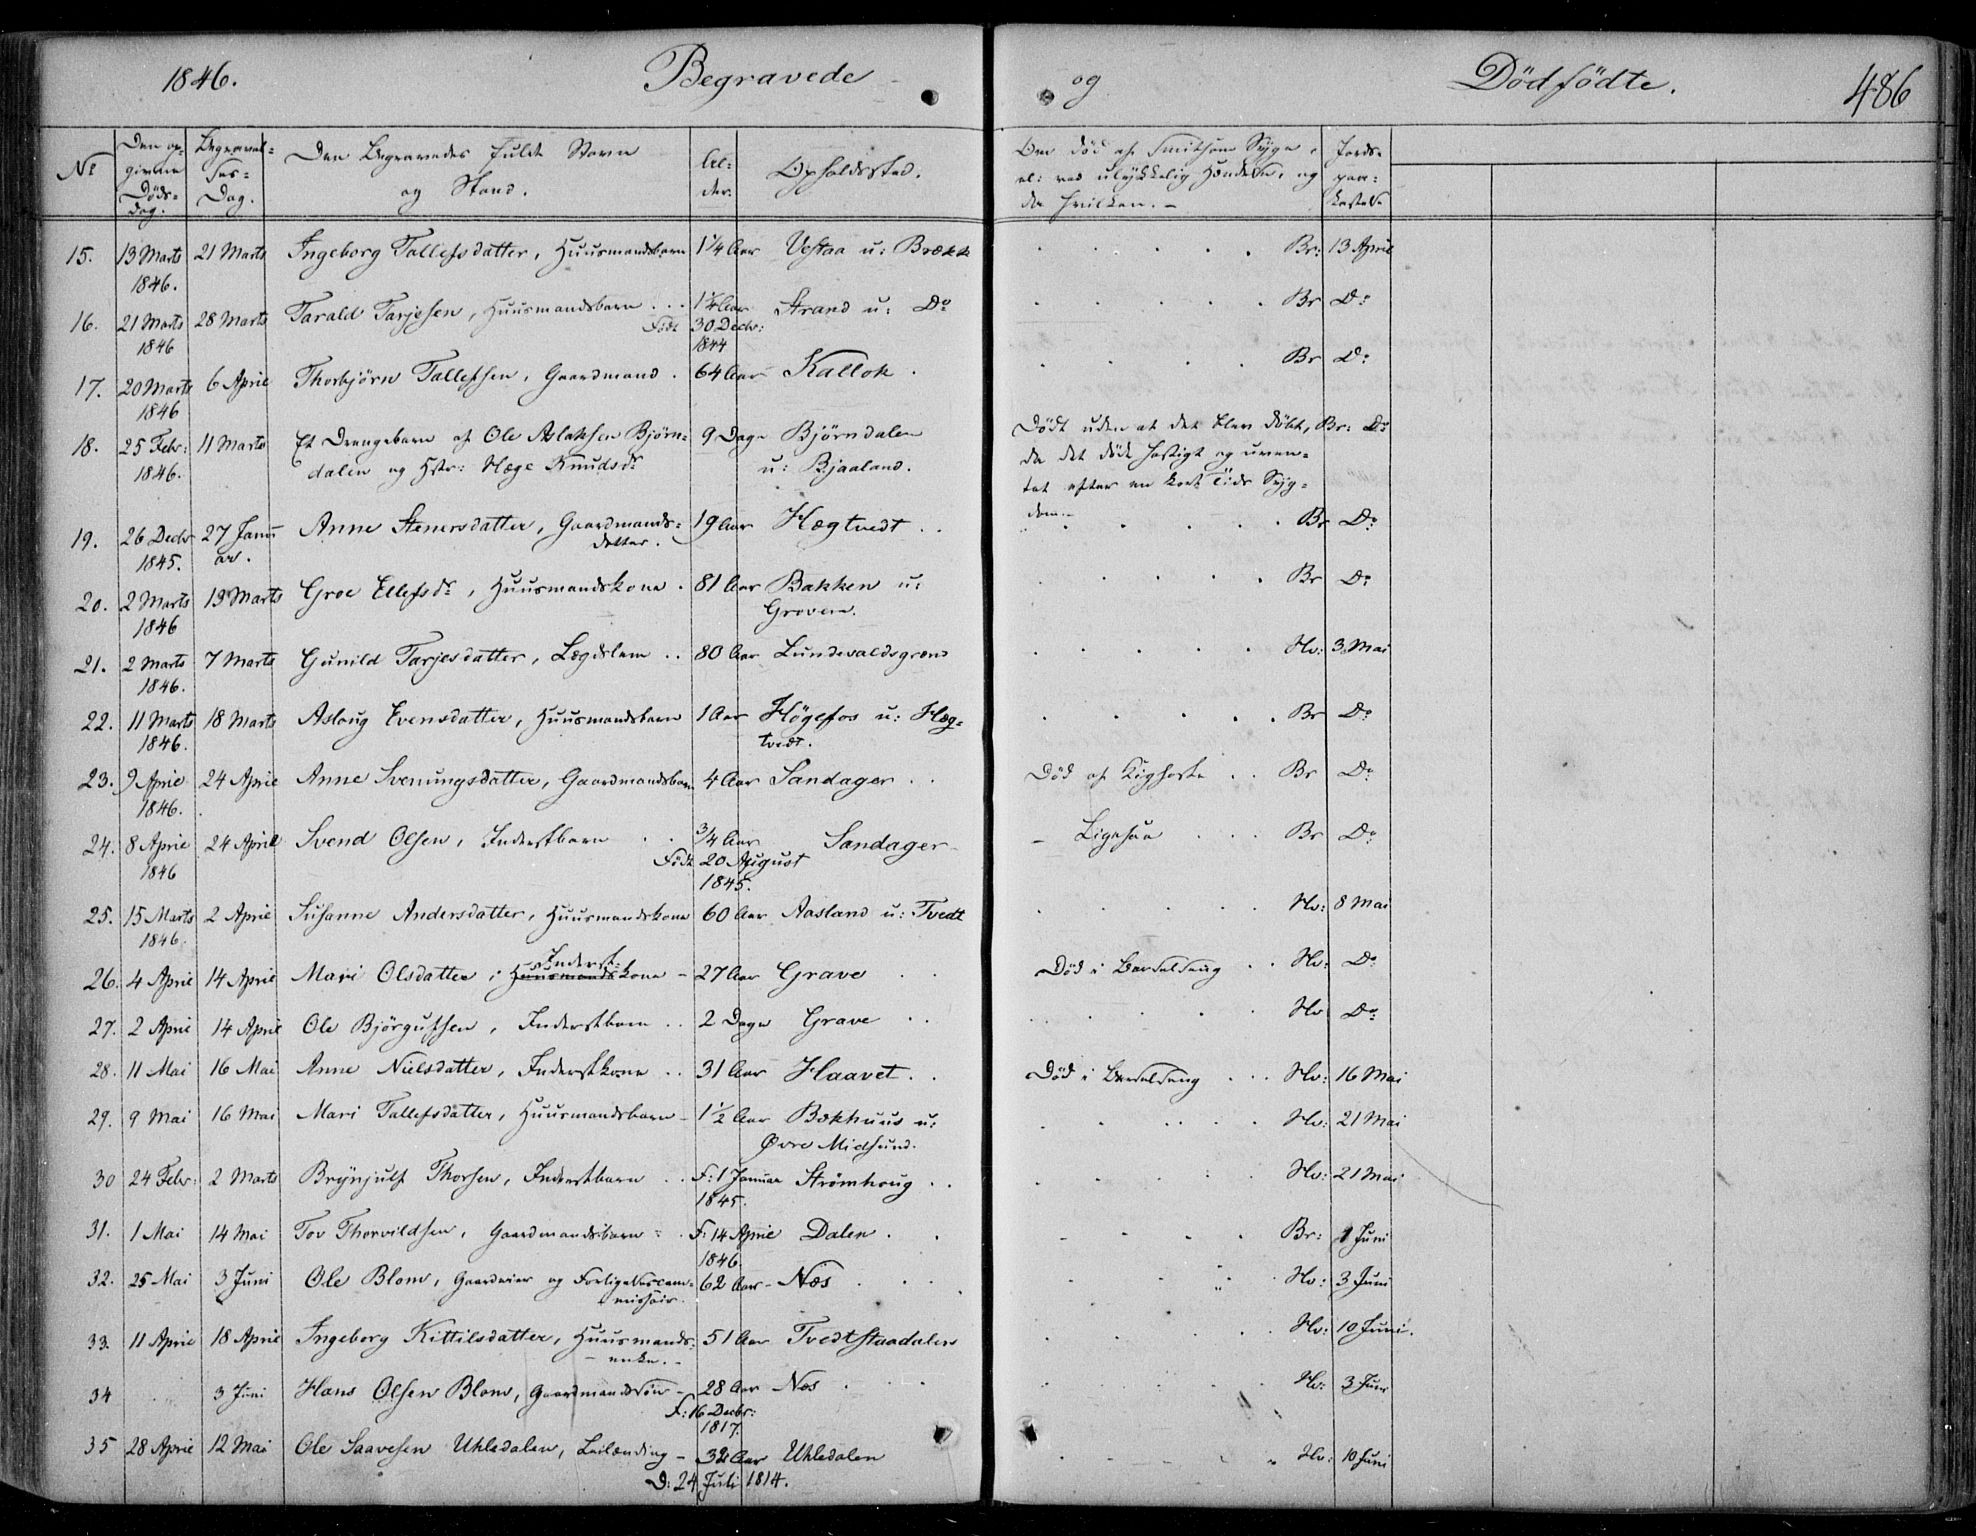 1846. Begravede og Dødfødte. 486
No
Den op-
givne
Døds-
dag.
Begravel-
ses-
Dag.
Den Begravedes fulde Navn
og Stand.
Al-
der.
Opholdssted.
Om død af smitsom Syge
el: ved ulykkelig Hændelse, og
da hvilken. -
Jords-
paa-
kastelse
15. 13 Marts 21 Marts Ingeborg Tallefsdatter, Huusmandsbarn 1 1/4 Aar Vestaa u: Brække Br: 13 April
1846.
16. 21 Marts 28 Marts Tarald Tarjesen, Huusmandsbarn 1 1/4 Aar Strand u: Do Br Do
1846 Født 30 Decbr:
1844
17. 20 Marts 6 April Thorbjörn Tallefsen, Gaardmand 64 Aar Kallok Br Do
1846
18. 25 Febr: 11 Marts Et Drengebarn af Ole Aslaksen Björn- 9 Dage Björndalen Dødt uden at det blev döbt, Br: Do
1846. dalen og Hstr: Hæge Knudsdr u: Bjaaland. da det döde hastigt og uven-
tet efter en kort Tids Syg-
dom.
19. 26 Decbr 27 Janu- Anne Stenersdatter, Gaardmands- 19 Aar Hægtvedt Br Do
1845. ar. datter.
20. 2 Marts 13 Marts Groe Ellefsdr, Huusmandskone 81 Aar Bakken u: Br Do
1846 Groven.
21. 2 Marts 7 Marts Gunild Tarjesdatter, Lægdslem 80 Aar Lundevaldsgrend Hv: 3 Mai
1846.
22. 11 Marts 18 Marts Aslaug Evensdatter, Huusmandsbarn 1 Aar Högefos u: Hæg- Br Do
1846. tvedt.
23. 9 April 24 April Anne Svenungsdatter, Gaardmandsbarn 4 Aar Sandager Død af Kighoste Br Do
1846.
24. 8 April 24 April Svend Olsen, Inderstbarn 3/4 Aar Sandager - Ligesaa Br Do
1846 Født 20 August
1845.
25. 15 Marts 2 April Susanne Andersdatter, Huusmandskone 60 Aar Aasland u: Tvedt Hv: 8 Mai
1846.
Inderst-
26. 4 April 14 April Mari Olsdatter, Huusmandskone - 27 Aar Grave Død i Barselseng Hv: Do
27. 2 April 14 April Ole Björgufsen, Inderstbarn 2 Dage Grave Hv Do
28. 11 Mai 16 Mai Anne Nielsdatter, Inderstkone 31 Aar Haavet Död i Barselseng Hv: 16 Mai
29. 9 Mai 16 Mai Mari Tallefsdatter, Huusmandsbarn - 1 1/2 Aar Bækhuus u: Hv: 21 Mai
Øvre Midsund.
30 24 Febr: 2 Marts Brynjulf Thorsen, Inderstbarn F: 1 Januar Strømhoug Hv: 21 Mai
1845.
31. 1 Mai 14 Mai Tov Thorvildsen, Gaardmandsbarn F: 14 April Dalen Br: 1 Juni
1846
32. 25 Mai 3 Juni Ole Blom, Gaardeier og Forligelsescom- 62 Aar - Næs Hv: 3 Juni
missair.
33. 11 April 18 April Ingeborg Kittilsdatter, Huusmands- 51 Aar Tvedtstaadalen Hv: 10 Juni.
- enke. -
34 3 Juni Hans Olsen Blom, Gaardmandssön - 28 Aar Næs Hv: 3 Juni
F: 16 Decbr:
1817.
35 28 April 12 Mai Ole Saavesen Uhledalen, Leilænding - 32 Aar Uhledalen Hv: 10 Juni
D: 24 Juli 1814.